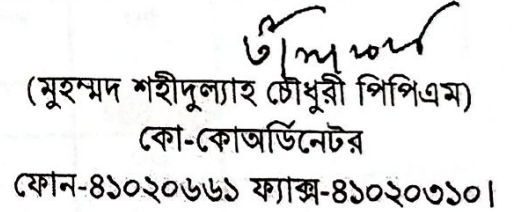 (মুহম্মদ শহীদুল্যাহ চৌধুরী পিপিএম)
কো-কোঅর্ডিনেটর
ফোন-৪১০২০৬৬১ ফ্যাক্স-৪১০২০৩১০।